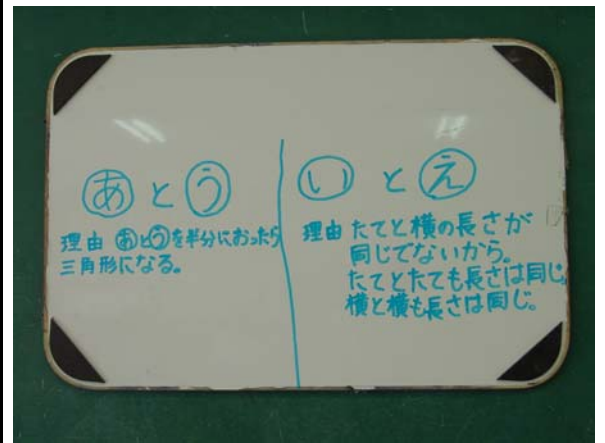 あ と う
理由 あとうを半分におったら
三角形になる。
い と え
理由 たてと横の長さが
同じでないから。
たてとたても長さは同じ。
横と横も長さは同じ。